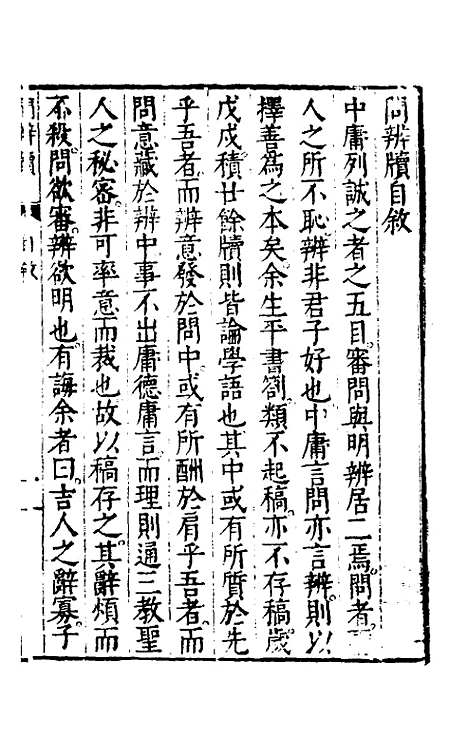 問辨牘自敘
中庸列誠之者之五目審問與明辨居二焉問者
人之所不恥辨非君子好也中庸言問亦言辨則以
擇善為之本矣余生平書劄類不起稿亦不存稿歲
戊戌積廿餘牘則皆論學語也其中或有所質於先
乎吾者而辨意發於問中或有所酬於肩乎吾者而
問意藏於辨中事不出庸德庸言而理則通三教聖
人之秘密非可率意而裁也故以稿存之其辭煩而
不殺問欲審辨欲明也有誨余者曰吉人之辭寡子
問辨牘 自敘